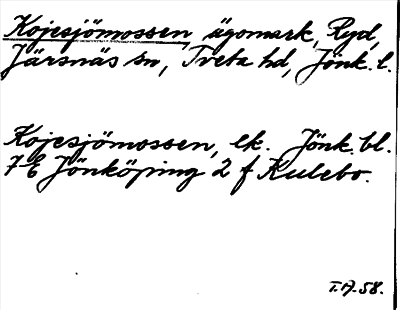 Kojesjömossen, ägomark, Ryd,
Järsnäs sn, Tveta hd, Jönk. l.
Kojesjömossen, ek. Jönk. bl.
7 E Jönköping 2 f Kulebo.
T.A.-58.